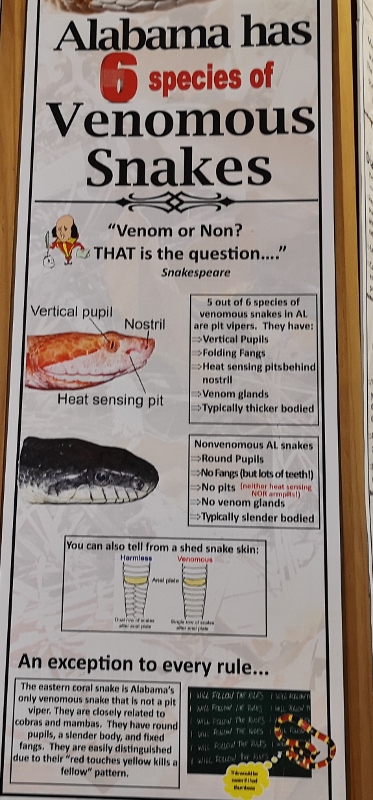 Alabama has
6 species of
Venomous
Snakes
"Venom or Non?
THAT is the question...."
Snakespeare
Vertical pupil
Nostril
Heat sensing pit
5 out of 6 species of
venomous snakes in AL
are pit vipers. They have:
⇒Vertical Pupils
⇒Folding Fangs
⇒Heat sensing pits behind
nostril
⇒Venom glands
⇒Typically thicker bodied
Nonvenomous AL snakes
⇒Round Pupils
⇒No Fangs (but lots of teeth!)
⇒No pits (neither heat sensing
NOR armpits!)
⇒No venom glands
⇒Typically slender bodied
You can also tell from a shed snake skin:
Harmless
Venomous
Anal plate
Dual row of scales
after anal plate
Single row of scales
after anal plate
An exception to every rule...
The eastern coral snake is Alabama's
only venomous snake that is not a pit
viper. They are closely related to
cobras and mambas. They have round
pupils, a slender body, and fixed
fangs. They are easily distinguished
due to their "red touches yellow kills a
fellow" pattern.
I WILL FOLLOW THE RULES I WILL FOLLOW
I WILL FOLLOW THE RULES
I WILL FOLLOW THE RULES
I WILL FOLLOW THE RULES
I WILL FOLLOW THE RULES
I WILL FOLLOW THE RULES
This would be
easier if I had
thumbs